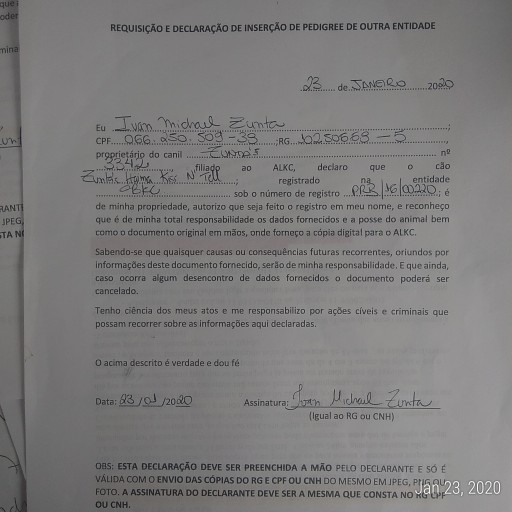 REQUISIÇÃO E DECLARAÇÃO DE INSERÇÃO DE PEDIGREE DE OUTRA ENTIDADE
23 de JANEIRO 2020
Eu Ivan Michael Zunta;
CPF 066.250.509-39 ;RG 10250669-5,
proprietário do canil Zunta's nº
3342, filiado ao ALKC, declaro que o cão
Zunta's N' Tell, registrado na entidade
sob o número de registro PRB/16/00220; é
de minha propriedade, autorizo que seja feito o registro em meu nome, e reconheço
que é de minha total responsabilidade os dados fornecidos e a posse do animal bem
como o documento original em mãos, onde forneço a cópia digital para o ALKC.
Sabendo-se que quaisquer causas ou consequências futuras recorrentes, oriundos por
informações deste documento fornecido, serão de minha responsabilidade. E que ainda,
caso ocorra algum desencontro de dados fornecidos o documento poderá ser
cancelado.
Tenho ciência dos meus atos e me responsabilizo por ações cíveis e criminais que
possam recorrer sobre as informações aqui declaradas.
O acima descrito é verdade e dou fé
Data: 23/01/2020 Assinatura: Ivan Michael Zunta
(Igual ao RG ou CNH)
OBS: ESTA DECLARAÇÃO DEVE SER PREENCHIDA A MÃO PELO DECLARANTE E SÓ É
VÁLIDA COM O ENVIO DAS CÓPIAS DO RG E CPF OU CNH DO MESMO EM JPEG, PNG OU
FOTO. A ASSINATURA DO DECLARANTE DEVE SER A MESMA QUE CONSTA NO RG CPF
OU CNH.
Jan 23, 2020